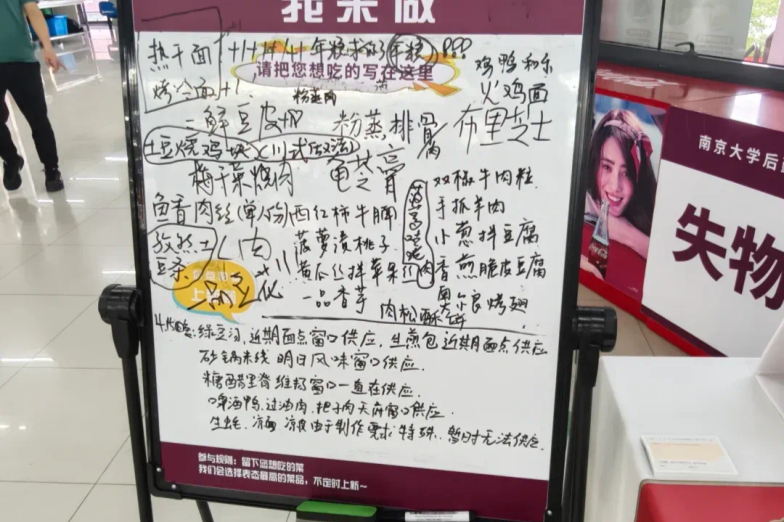 我来做
热干面
年糕
???
请把您想吃的写在这里
鸡鸭和乐
烤冷面+1
粉蒸肉
火鸡面
三鲜豆皮
粉蒸排骨
布里芝士
土豆烧鸡块(川式做法)
梅干菜烧肉
龟苓膏
双椒牛肉粒
鱼香肉丝(单份)
西红柿牛腩
手抓羊肉
菠萝渍桃子
小葱拌豆腐
黄瓜丝拌苹果
香煎脆皮豆腐
一品香芋
奥尔良烤翅
肉松酥饼
绿豆汤,近期面点窗口供应,生煎包近期面点供应
砂锅米线 明日风味窗口供应
糖醋里脊维扬窗口一直在供应.
啤酒鸭,过油肉,把子肉天府窗口供应.
生蚝、凉面、凉皮由于制作需求特殊,暂时无法供应.
参与规则:留下您想吃的菜
我们会选择表态最高的菜品,不定时上新~
南京大学后
失物